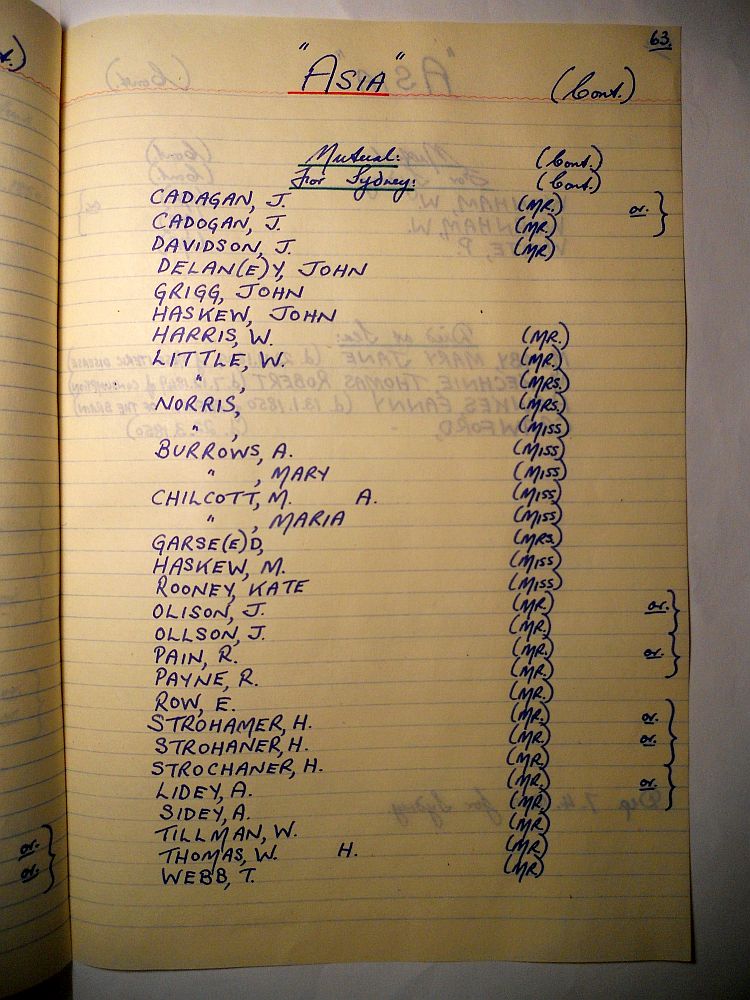 63.
"ASIA" (Cont.)
Mutual: (Cont.)
For Sydney: (Cont.)
CADAGAN, J. (MR.) or.
CADOGAN, J. (MR.)
DAVIDSON, J. (MR)
DELAN(E)Y, JOHN
GRIGG, JOHN
HASKEW, JOHN
HARRIS, W. (MR.)
LITTLE, W. (MR.)
" (MRS.)
NORRIS, (MRS.)
" , (MISS)
BURROWS, A. (MISS)
" , MARY (MISS)
CHILCOTT, M. A. (MISS)
" , MARIA (MISS)
GARSE(E)D, (MRS.)
HASKEW, M. (MISS)
ROONEY, KATE (MISS)
OLISON, J. (MR.) or.
OLLSON, J. (MR.)
PAIN, R. (MR.) or.
PAYNE, R. (MR.)
ROW, E. (MR.)
STROHAMER, H. (MR.) or.
STROHANER, H. (MR.) or.
STROCHANER, H. (MR.)
LIDEY, A. (MR.) or.
SIDEY, A. (MR.)
TILLMAN, W. (MR.)
THOMAS, W. H. (MR.)
WEBB, T. (MR)
or.
or.